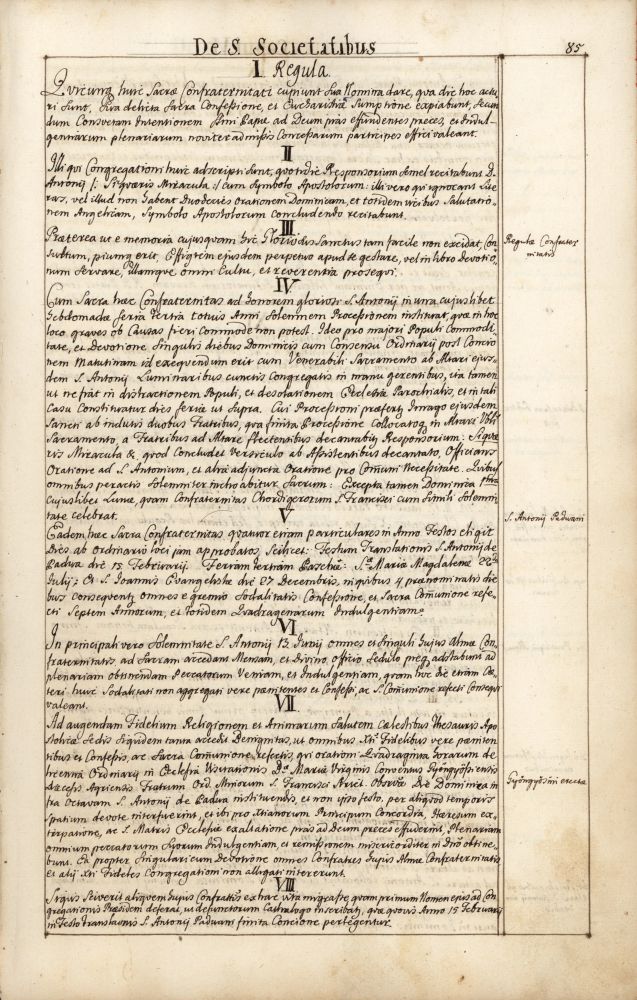 De S. Societatibus
85
I Regula.
Quicunq huic Sacræ Confraternitati cupiunt sua Nomina dare, qua die hoc actu-
ri sunt, sua delicta sacra Confessione, et Eucharistiæ Sumptione expiabunt, secun
dum Consvetam Intentionem Papæ ad Deum pias effundentes preces, et Indul-
gentiarum plenariarum noviter admissis Concessarum participes effici valeant.
II
Illi qui Congregationi huic adscripti sunt, quotidie Responsorium semel recitabunt D.
Antonij /: Si quæris Miracula :/ cum Symbolo Apostolorum: illi vero qui ignorant Lite
ras, vel illud non habent Duodecies orationem Dominicam, et totidem vicibus Salutatio-
nem Angelicam, Symbolo Apostolorum concludendo recitabunt.
III
Præterea ut e memoria cujusquam hic Gloriosus Sanctus tam facile non excidat, Con
sultum, piumq erit, Effigiem ejusdem perpetuo apud se gestare, vel in libro Devotio-
num servare, illamque omni Cultu, et reverentia prosequi.
Regulæ Confrater
nitatis
IV
Cum Sacra hæc Confraternitas ad honorem gloriosi S. Antonij in una cujuslibet
hebdomadæ feria tertia totius Anni solemnem Processionem instituat, quæ in hoc
loco graves ob Causas fieri commode non potest. Ideo pro majori Populi Commodi
tate, et Devotione Singulis diebus Dominicis cum Consensu Ordinarij post Concio
nem Matutinam id exequendum erit cum Venerabili Sacramento ab Altari ejus-
dem S. Antonij Luminaribus cunctis Congregatis in manu gerentibus, ita tamen
ut ne fiat in distractionem Populi, et desolationem Ecclesiæ Parochialis, et in tali
Casu Constituatur dies feriæ ut supra. Cui Processioni præfertq Imago ejusdem
Sancti ab indutis duobus Fratribus, qua finita Processione collocatoq in Altari Vbli
Sacramento, a Fratribus ad Altare flectentibus decantabitq Responsorium: Si quæ
ris Miracula &, quod Concludet versiculo ab Assistentibus decantato, Officians
Oratione ad S. Antonium, et alia adjuncta Oratione pro Com̄uni Necessitate. Quibus
omnibus peractis solemniter inchoabitur Sacrum: Excepta tamen Dominica pma
cujuslibet Lunæ, quam Confraternitas Chordigerorum S. Francisci cum simili Solemni
tate celebrat.
V
S. Antonij Paduani
Eadem hæc Sacra Confraternitas quatuor etiam particulares in Anno Festos eligit
Dies ab ordinario loci jam approbatos, scilicet: Festum Translationis S. Antonij de
Padua die 15 Februarij. Feriam tertiam Paschæ: S.æ Mariæ Magdalenæ 22da
Julij; Et S. Joannis Evangelistæ die 27 Decembris, in quibus 4 prænominatis die
bus consequentq omnes e gremio Sodalitatis Confessione, et Sacra Com̄unione refe-
cti Septem Annorum, et totidem Quadragenarum Indulgentiam.
VI
In principali vero solemnitate S. Antonij 13 Junij omnes et singuli hujus Almæ Con-
fraternitatis ad Sacram accedant Mensam, et Divino officio sedulo adstabunt ad
plenariam obtinendam Peccatorum Veniam, et Indulgentiam, quam hoc die etiam Cæ-
teri huic Sodalitati non aggregati vere pænitentes et Confessi, ac S. Com̄unione refecti Consequi
valeant.
VII
Ad augendam Fidelium Religionem et Animarum Salutem Cælestibus Thesauris Apo
stolicæ Sedis siquidem tanta accedit Benignitas, ut omnibus Xti Fidelibus vere pæniten
tibus et Confessis, ac Sacra Com̄unione refectis, qui orationi Quadraginta horarum de
licentia Ordinarij in Ecclesia Visitationis Dæ Mariæ Virginis Conventus Gyöngyösiensis
diæcesis Agriensis Fratrum Ord. Minorum S. Francisci Strict. Observæ Die Dominica in
fra Octavam S. Antonij de Padua instituendis, et non ipso festo, per aliquod temporis
spatium devote interfuerint, et ibi pro Xtianorum Principum Concordia, Hæresum ex-
tirpatione, ac S. Matris Ecclesiæ exaltatione pias ad Deum preces effuderint, Plenariam
omnium peccatorum Suorum Indulgentiam, et remissionem misericorditer in Dn̄o obtine-
bunt. Ea propter singulari cum Devotione omnes Confratres hujus Almæ Confraternitatis
et alij Xti Fideles Congregationi non alligati intererunt.
Gyöngyösini erecta
VIII
Si quis sciverit aliquem hujus Confratris ex hac vita migrasse, quam primum Nomen ejus ad Con
gregationis Præsidem deferat, ut defunctorum Cathalogo inscribatq, quæ quovis Anno 15 Februarij
in Festo translationis S. Antonij Paduani finita Concione perlegentur.